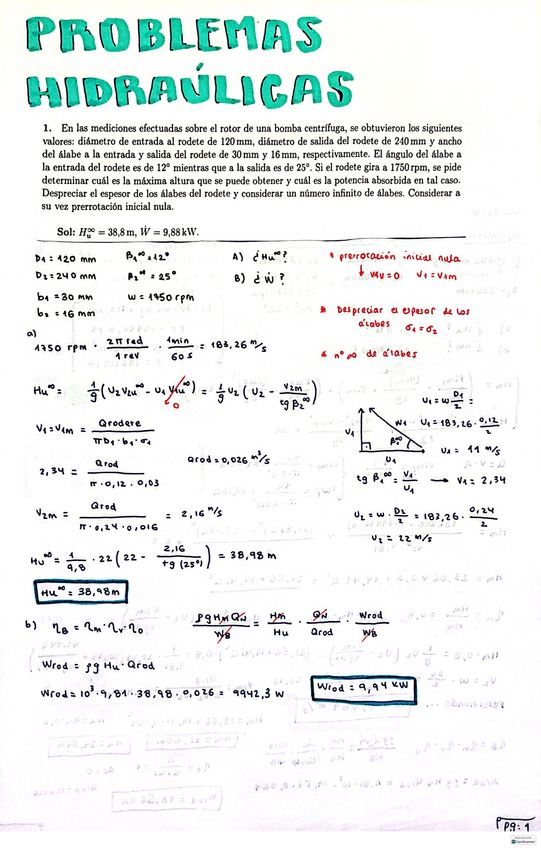 PROBLEMAS
HIDRAÚLICAS
1. En las mediciones efectuadas sobre el rotor de una bomba centrífuga, se obtuvieron los siguientes
valores: diámetro de entrada al rodete de 120 mm, diámetro de salida del rodete de 240 mm y ancho
del álabe a la entrada y salida del rodete de 30 mm y 16 mm, respectivamente. El ángulo del álabe a
la entrada del rodete es de 12° mientras que a la salida es de 25°. Si el rodete gira a 1750 rpm, se pide
determinar cuál es la máxima altura que se puede obtener y cuál es la potencia absorbida en tal caso.
Despreciar el espesor de los álabes del rodete y considerar un número infinito de álabes. Considerar a
su vez prerrotación inicial nula.
Sol: H_u^∞ = 38,8 m, Ẇ = 9,88 kW.
D1 = 120 mm β1^∞ = 12° A) ¿Hu^∞? * prerrocación inicial nula
D2 = 240 mm β2^∞ = 25° B) ¿Ẇ? ↓ V1u = 0 V1 = V1m
b1 = 30 mm w = 1750 rpm
b2 = 16 mm * Despreciar el espesor de los
álabes σ1 = σ2
a)
1750 rpm · 2π rad / 1 rev · 1 min / 60 s = 183,26 m/s * nº ∞ de álabes
Hu^∞ = 1/g (U2 V2u^∞ - U1 V1u^∞) = 1/g U2 (U2 - V2m / tg β2^∞) U1 = w D1/2 =
0
V1 = V1m = Qrodete / πD1·b1·σ1 V1 W1 β1^∞ U1 U1 = 183,26 · 0,12/2
U1 = 11 m/s
2,34 = Qrod / π·0,12·0,03 Qrod = 0,026 m³/s tg β1^∞ = V1/U1 → V1 = 2,34
V2m = Qrod / π·0,24·0,016 = 2,16 m/s U2 = w · D2/2 = 183,26 · 0,24/2
U2 = 22 m/s
Hu^∞ = 1/9,8 · 22 (22 - 2,16 / tg (25°)) = 38,98 m
Hu^∞ = 38,98m
b) ηB = ηm · ηv · η0 ρg Hm QN / WB = Hm / Hu · QN / Qrod · Wrod / WB
Wrod = ρg Hu · Qrod
Wrod = 10³ · 9,81 · 38,98 · 0,026 = 9942,3 W Wrod = 9,94 kW
Pg: 1
CamScanner